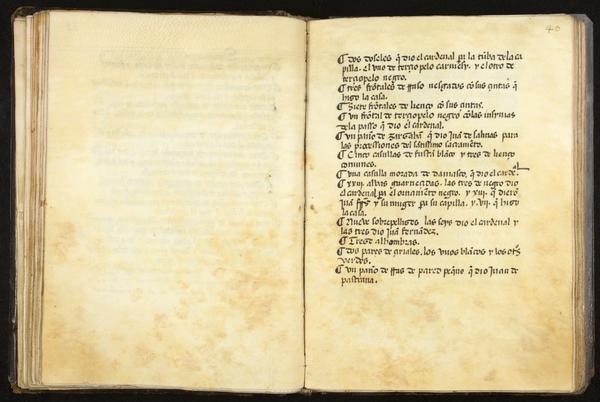 40
¶ dos doseles q̃ dio el cardenal pa la tũba de la ca
pilla. el uno de terçiopelo carmesy. y el otro de
terçiopelo negro.
¶ tres frõtales de rraso negrados cõ sus çintas q̃
hizo la casa.
¶ Siete frõtales de lienço cõ sus çintas.
¶ vn frõtal de terçiopelo negro cõ las insynias
de la passo q̃ dio el cardenal.
¶ vn paño de zarzahã q̃ dio Juã de salinas para
las processiones del sãtissimo sacramẽto.
¶ Cinco casullas de fustã blãco y tres de lienço
comunes.
¶ vna casulla morada de damasco, q̃ dio el carde
al
¶ xxii. alvas guarneçidas. las tres de negro dio
el cardenal pa el ornamẽto negro. y xii. q̃ dierõ
Juã y su muger pa su capilla. y. vii. q̃ hizo
la casa.
¶ Nueve sobrepellises las seys dio el cardenal y
las tres dio Juã fernãdez.
¶ Treze alhombras.
¶ dos pares de griales. los vnos blãcos y los otˢ
verdes.
¶ vn paño de rras de pared peq̃no q̃ dio Juan de
pastrana.